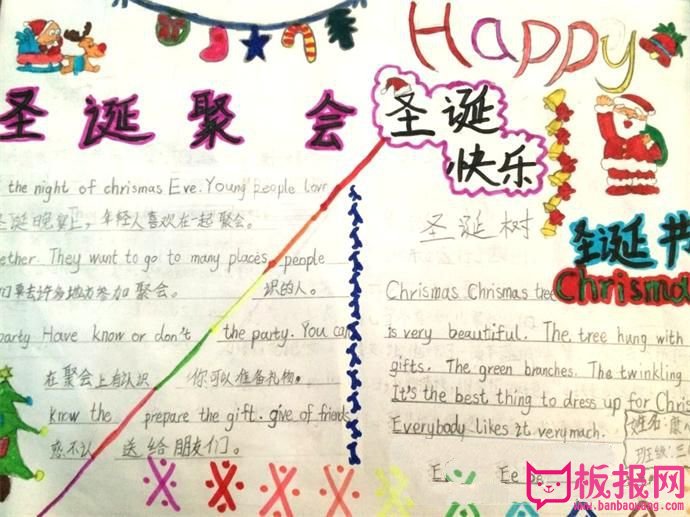 Happy
圣诞聚会
圣诞
快乐
the night of chrismas Eve. Young people love
圣诞晚会上，年轻人喜欢在一起聚会。
ether. They want to go to many places, people
们要去许多地方参加聚会。 识的人。
party Have know or don't the party. You can
在聚会上有认识 你可以准备礼物。
know the prepare the gift. give of friends
恋不认 送给朋友们。
圣诞树
圣诞节
Chrisma
Chrismas Chrismas tree
is very beautiful. The tree hung with
gifts. The green branches. The twinkling
It's the best thing to dress up for Chris
Everybody likes it verymach.
姓名:康
班级:三
板报网
www.banbaowang.com